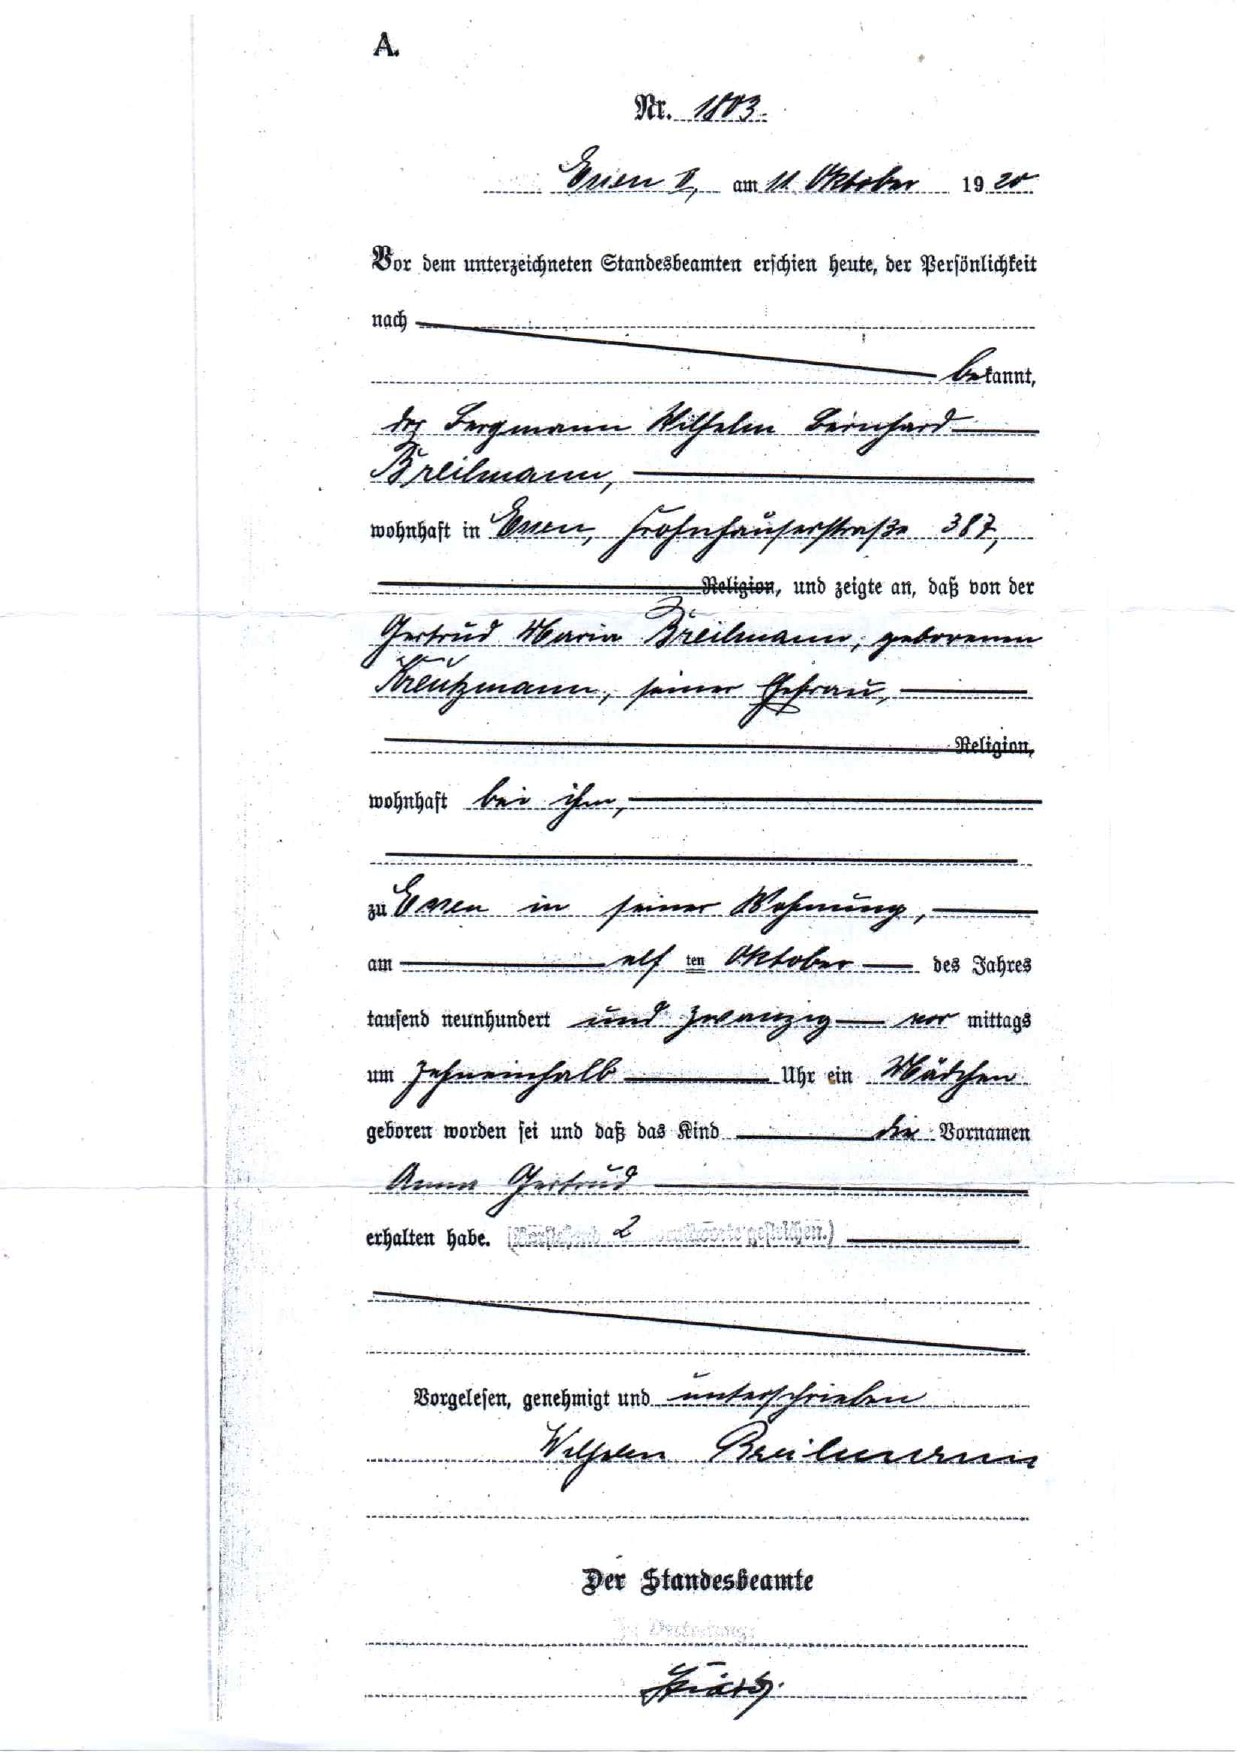 A.
Nr. 1803.
Essen II, am 11. Oktober 1920
Vor dem unterzeichneten Standesbeamten erschien heute, der Persönlichkeit
nach
bekannt,
der Bergmann Wilhelm Bernhard
Breilmann,
wohnhaft in Essen, Frohnhauserstraße 387,
Religion, und zeigte an, daß von der
Gertrud Maria Breilmann, geborenen
Kreutzmann, seiner Ehefrau,
Religion,
wohnhaft bei ihm,
zu Essen in seiner Wohnung,
am elften Oktober des Jahres
tausend neunhundert und zwanzig vormittags
um zehneinhalb Uhr ein Mädchen
geboren worden sei und daß das Kind die Vornamen
Anna Gertrud
erhalten habe. (Vorstehend 2 Druckworte gestrichen.)
Vorgelesen, genehmigt und unterschrieben
Wilhelm Breilmann
Der Standesbeamte
In Vertretung: